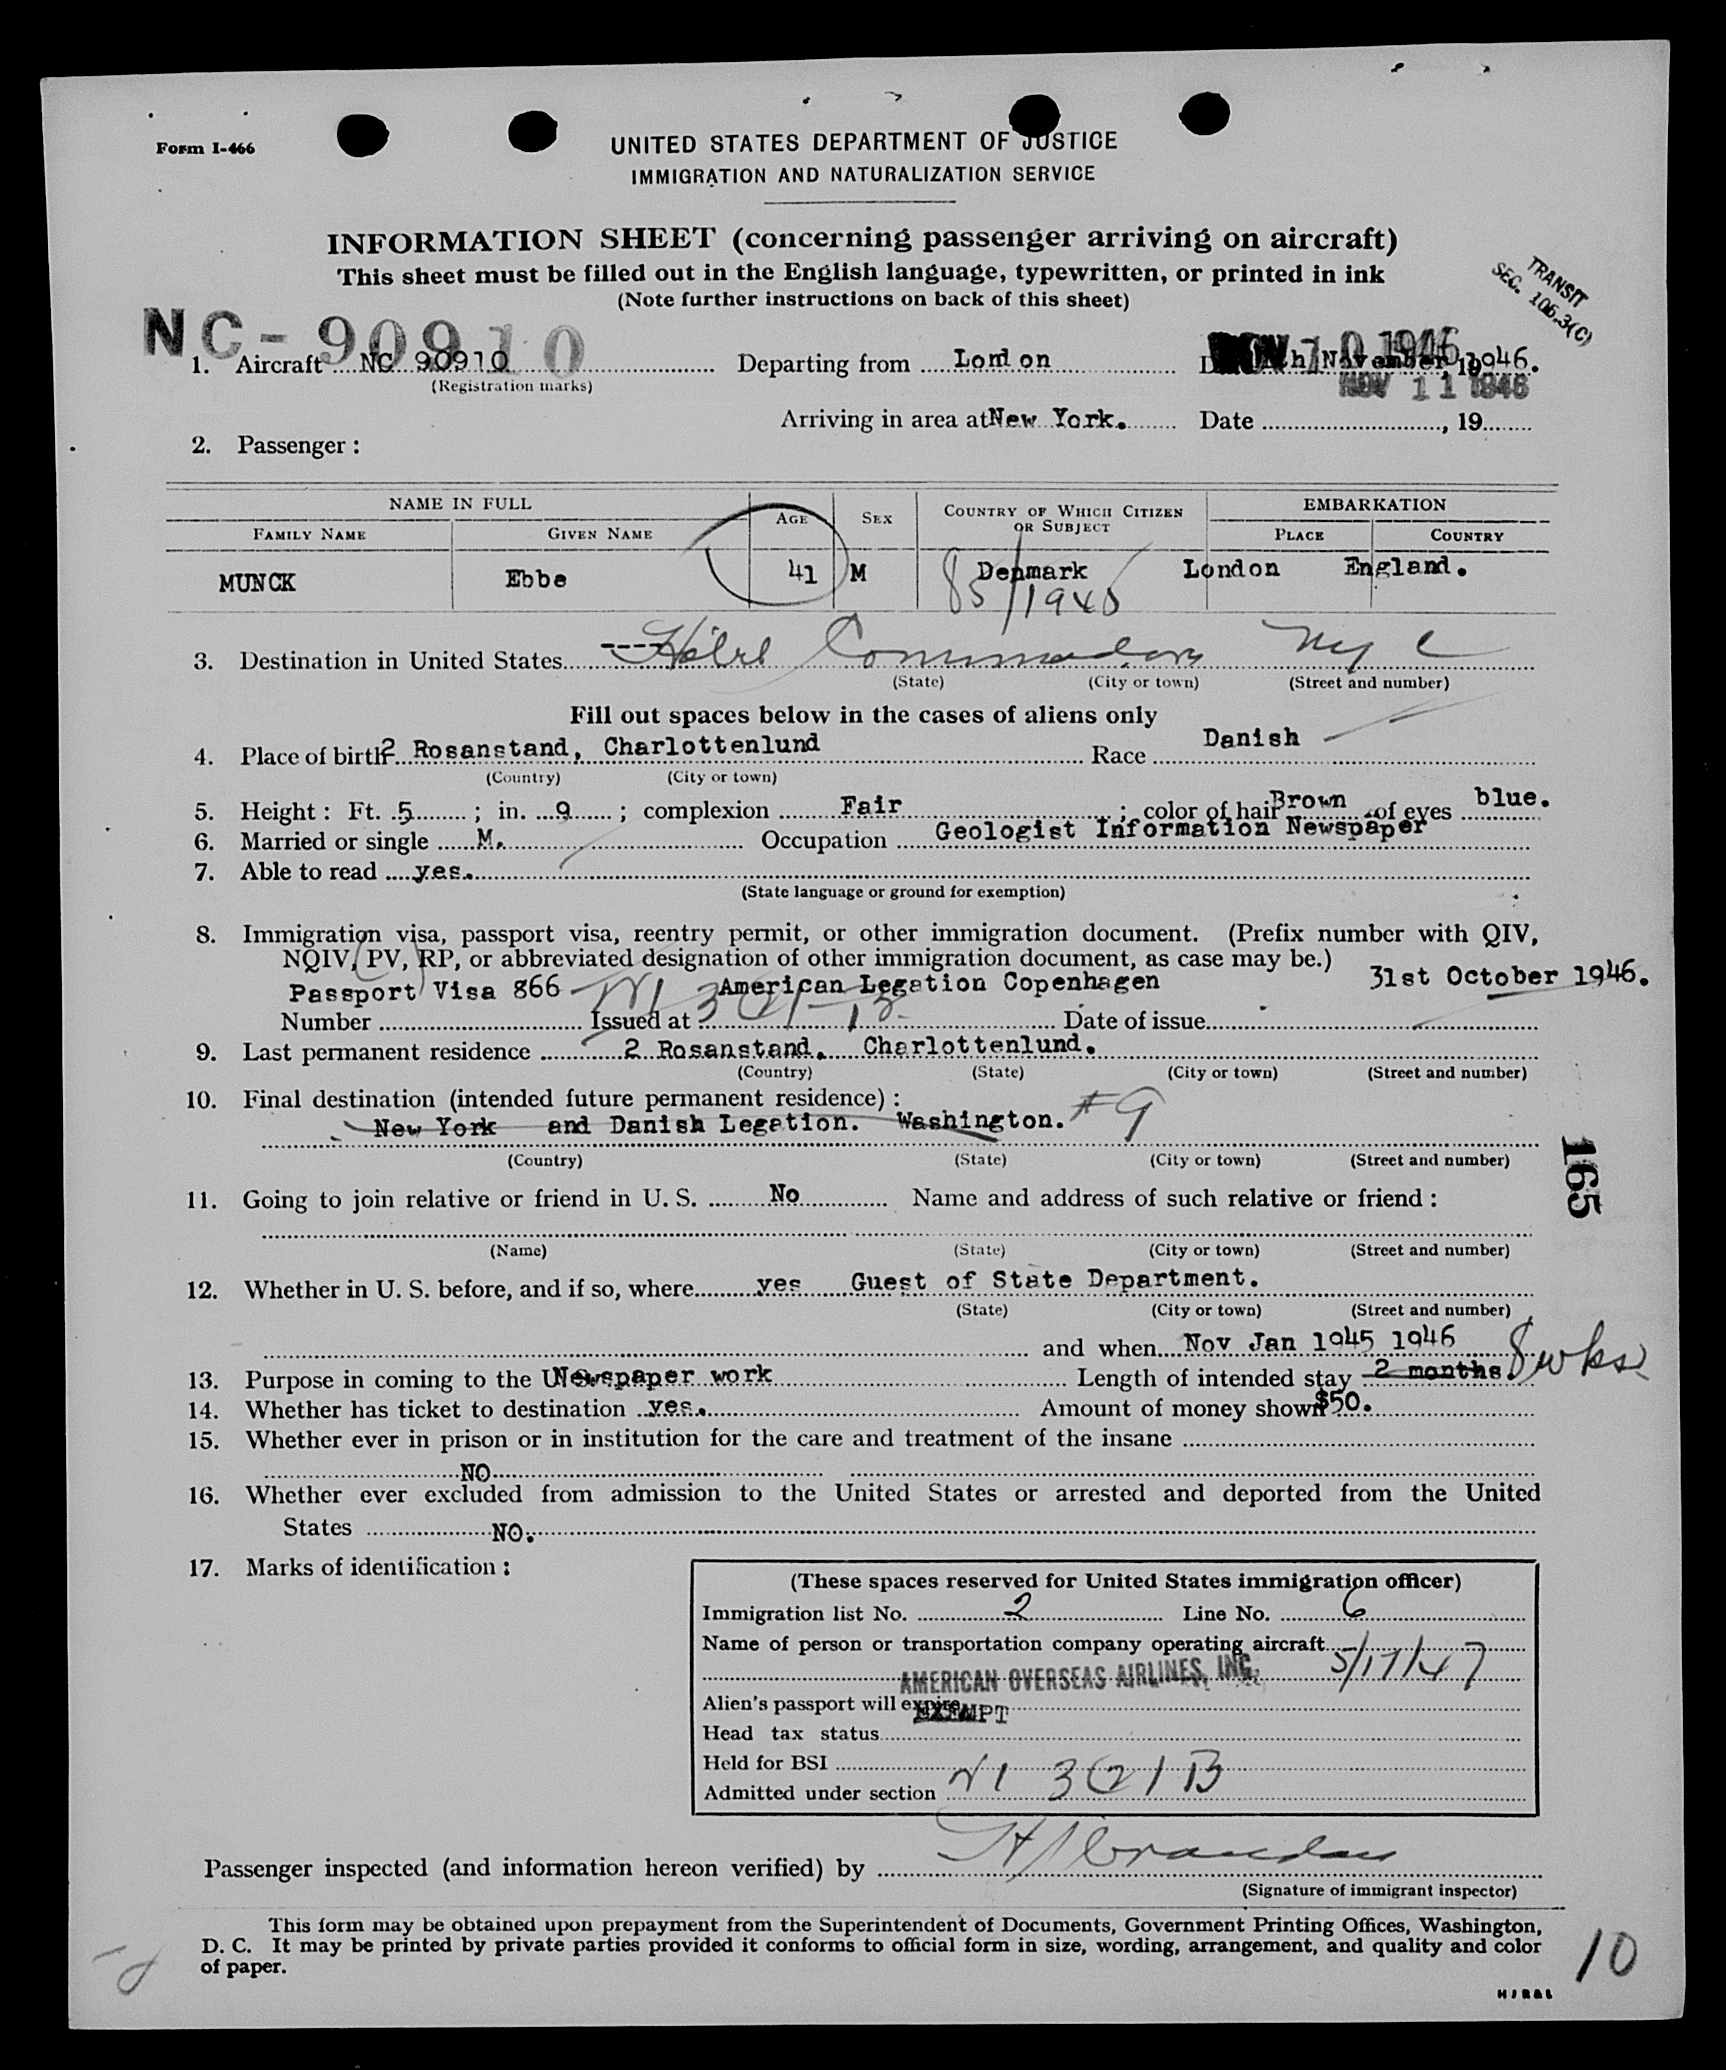 Form I-466
UNITED STATES DEPARTMENT OF JUSTICE
IMMIGRATION AND NATURALIZATION SERVICE
INFORMATION SHEET (concerning passenger arriving on aircraft)
This sheet must be filled out in the English language, typewritten, or printed in ink
(Note further instructions on back of this sheet)
TRANSIT
SEC. 106.3(C)
NC-90910
NOV 10 1946
1. Aircraft NC 90910 Departing from London November, 1946.
(Registration marks)
NOV 11 1946
Arriving in area at New York. Date , 19
2. Passenger :
NAME IN FULL AGE SEX COUNTRY OF WHICH CITIZEN OR SUBJECT EMBARKATION
FAMILY NAME GIVEN NAME PLACE COUNTRY
MUNCK Ebbe 41 M Denmark London England.
3. Destination in United States ---- Hotel Commodore NYC
(State) (City or town) (Street and number)
Fill out spaces below in the cases of aliens only
4. Place of birth 2 Rosanstand, Charlottenlund Race Danish
(Country) (City or town)
5. Height : Ft. 5 ; in. 9 ; complexion Fair ; color of hair Brown of eyes blue.
6. Married or single M. Occupation Geologist Information Newspaper
7. Able to read yes.
(State language or ground for exemption)
8. Immigration visa, passport visa, reentry permit, or other immigration document. (Prefix number with QIV,
NQIV, PV, RP, or abbreviated designation of other immigration document, as case may be.)
Passport Visa 866 American Legation Copenhagen 31st October 1946.
Number Issued at Date of issue
9. Last permanent residence 2 Rosanstand. Charlottenlund.
(Country) (State) (City or town) (Street and number)
10. Final destination (intended future permanent residence) :
New York and Danish Legation. Washington. #9
(Country) (State) (City or town) (Street and number)
165
11. Going to join relative or friend in U. S. No Name and address of such relative or friend :
(Name) (State) (City or town) (Street and number)
12. Whether in U. S. before, and if so, where yes Guest of State Department.
(State) (City or town) (Street and number)
and when Nov Jan 1945 1946
13. Purpose in coming to the U Newspaper work Length of intended stay 2 months. 8 wks
14. Whether has ticket to destination yes. Amount of money shown $50.
15. Whether ever in prison or in institution for the care and treatment of the insane
NO
16. Whether ever excluded from admission to the United States or arrested and deported from the United
States NO.
17. Marks of identification :
(These spaces reserved for United States immigration officer)
Immigration list No. 2 Line No. 6
Name of person or transportation company operating aircraft
AMERICAN OVERSEAS AIRLINES, INC. 5/17/47
Alien's passport will expire
EXEMPT
Head tax status
Held for BSI
Admitted under section 3(2)
Passenger inspected (and information hereon verified) by
(Signature of immigrant inspector)
This form may be obtained upon prepayment from the Superintendent of Documents, Government Printing Offices, Washington,
D. C. It may be printed by private parties provided it conforms to official form in size, wording, arrangement, and quality and color
of paper.
10